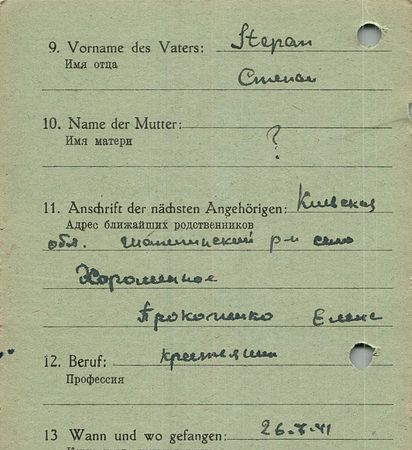 9. Vorname des Vaters: Stepan
Имя отца
Степан
10. Name der Mutter: ?
Имя матери
11. Anschrift der nächsten Angehörigen: Киевская
Адрес ближайших родственников
обл. р-н село
Прокопенко Елене
12. Beruf:
Профессия
13 Wann und wo gefangen: